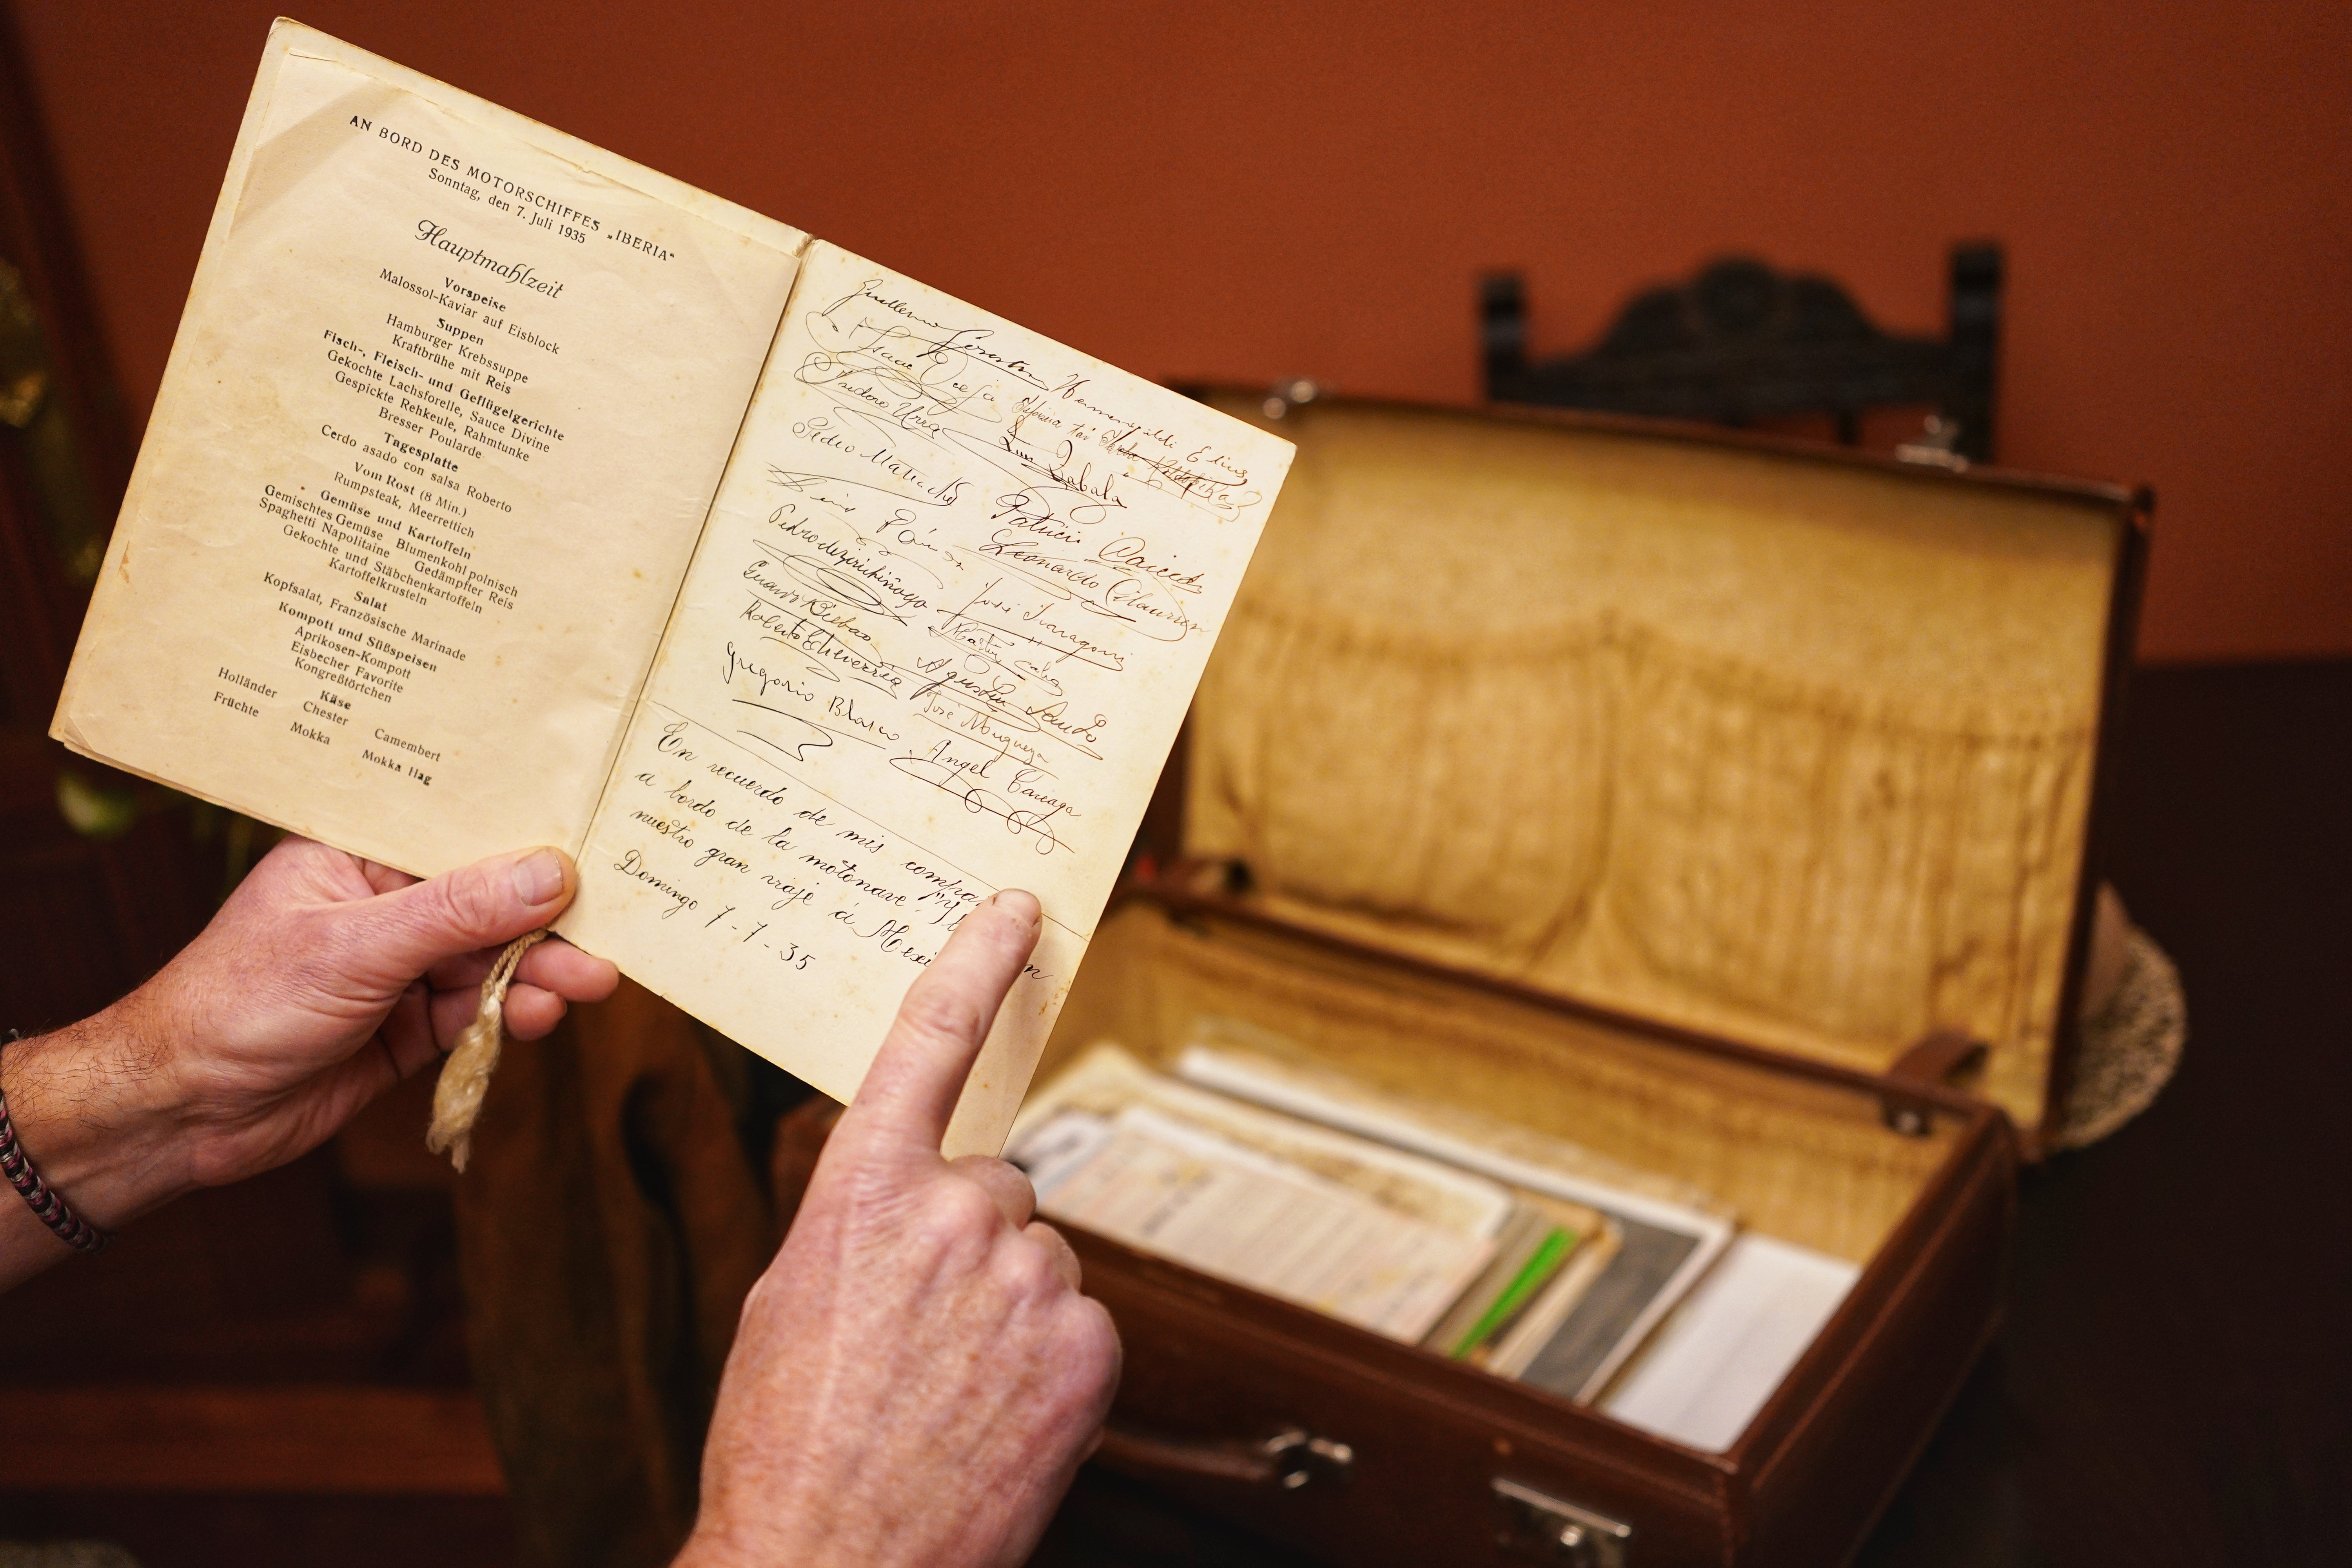 AN BORD DES MOTORSCHIFFES „IBERIA“
Sonntag, den 7. Juli 1935
Hauptmahlzeit
Vorspeise
Malossol-Kaviar auf Eisblock
Suppen
Hamburger Krebssuppe
Kraftbrühe mit Reis
Fisch-, Fleisch- und Geflügelgerichte
Gekochte Lachsforelle, Sauce Divine
Gespickte Rehkeule, Rahmtunke
Bresser Poularde
Tagesplatte
Cerdo asado con salsa Roberto
Vom Rost (8 Min.)
Rumpsteak, Meerrettich
Gemüse und Kartoffeln
Gemischtes Gemüse Blumenkohl polnisch
Spaghetti Napolitaine Gedämpfter Reis
Gekochte und Stäbchenkartoffeln
Kartoffelkrusteln
Salat
Kopfsalat, Französische Marinade
Kompott und Süßspeisen
Aprikosen-Kompott
Eisbecher Favorite
Kongreßtörtchen
Käse
Holländer Chester Camembert
Früchte Mokka Mokka Hag
Guillermo
Isaac
Isidoro Urrea Luis Zabala
Pedro
Luis Patricio
Pedro Leonardo Cilaurren
José Iraragorri
Roberto Echeverria Agustin Sauto
Gregorio Blasco José Muguerza
Angel
En recuerdo de mis
a bordo de la motonave
nuestro gran viaje á
Domingo 7-7-35